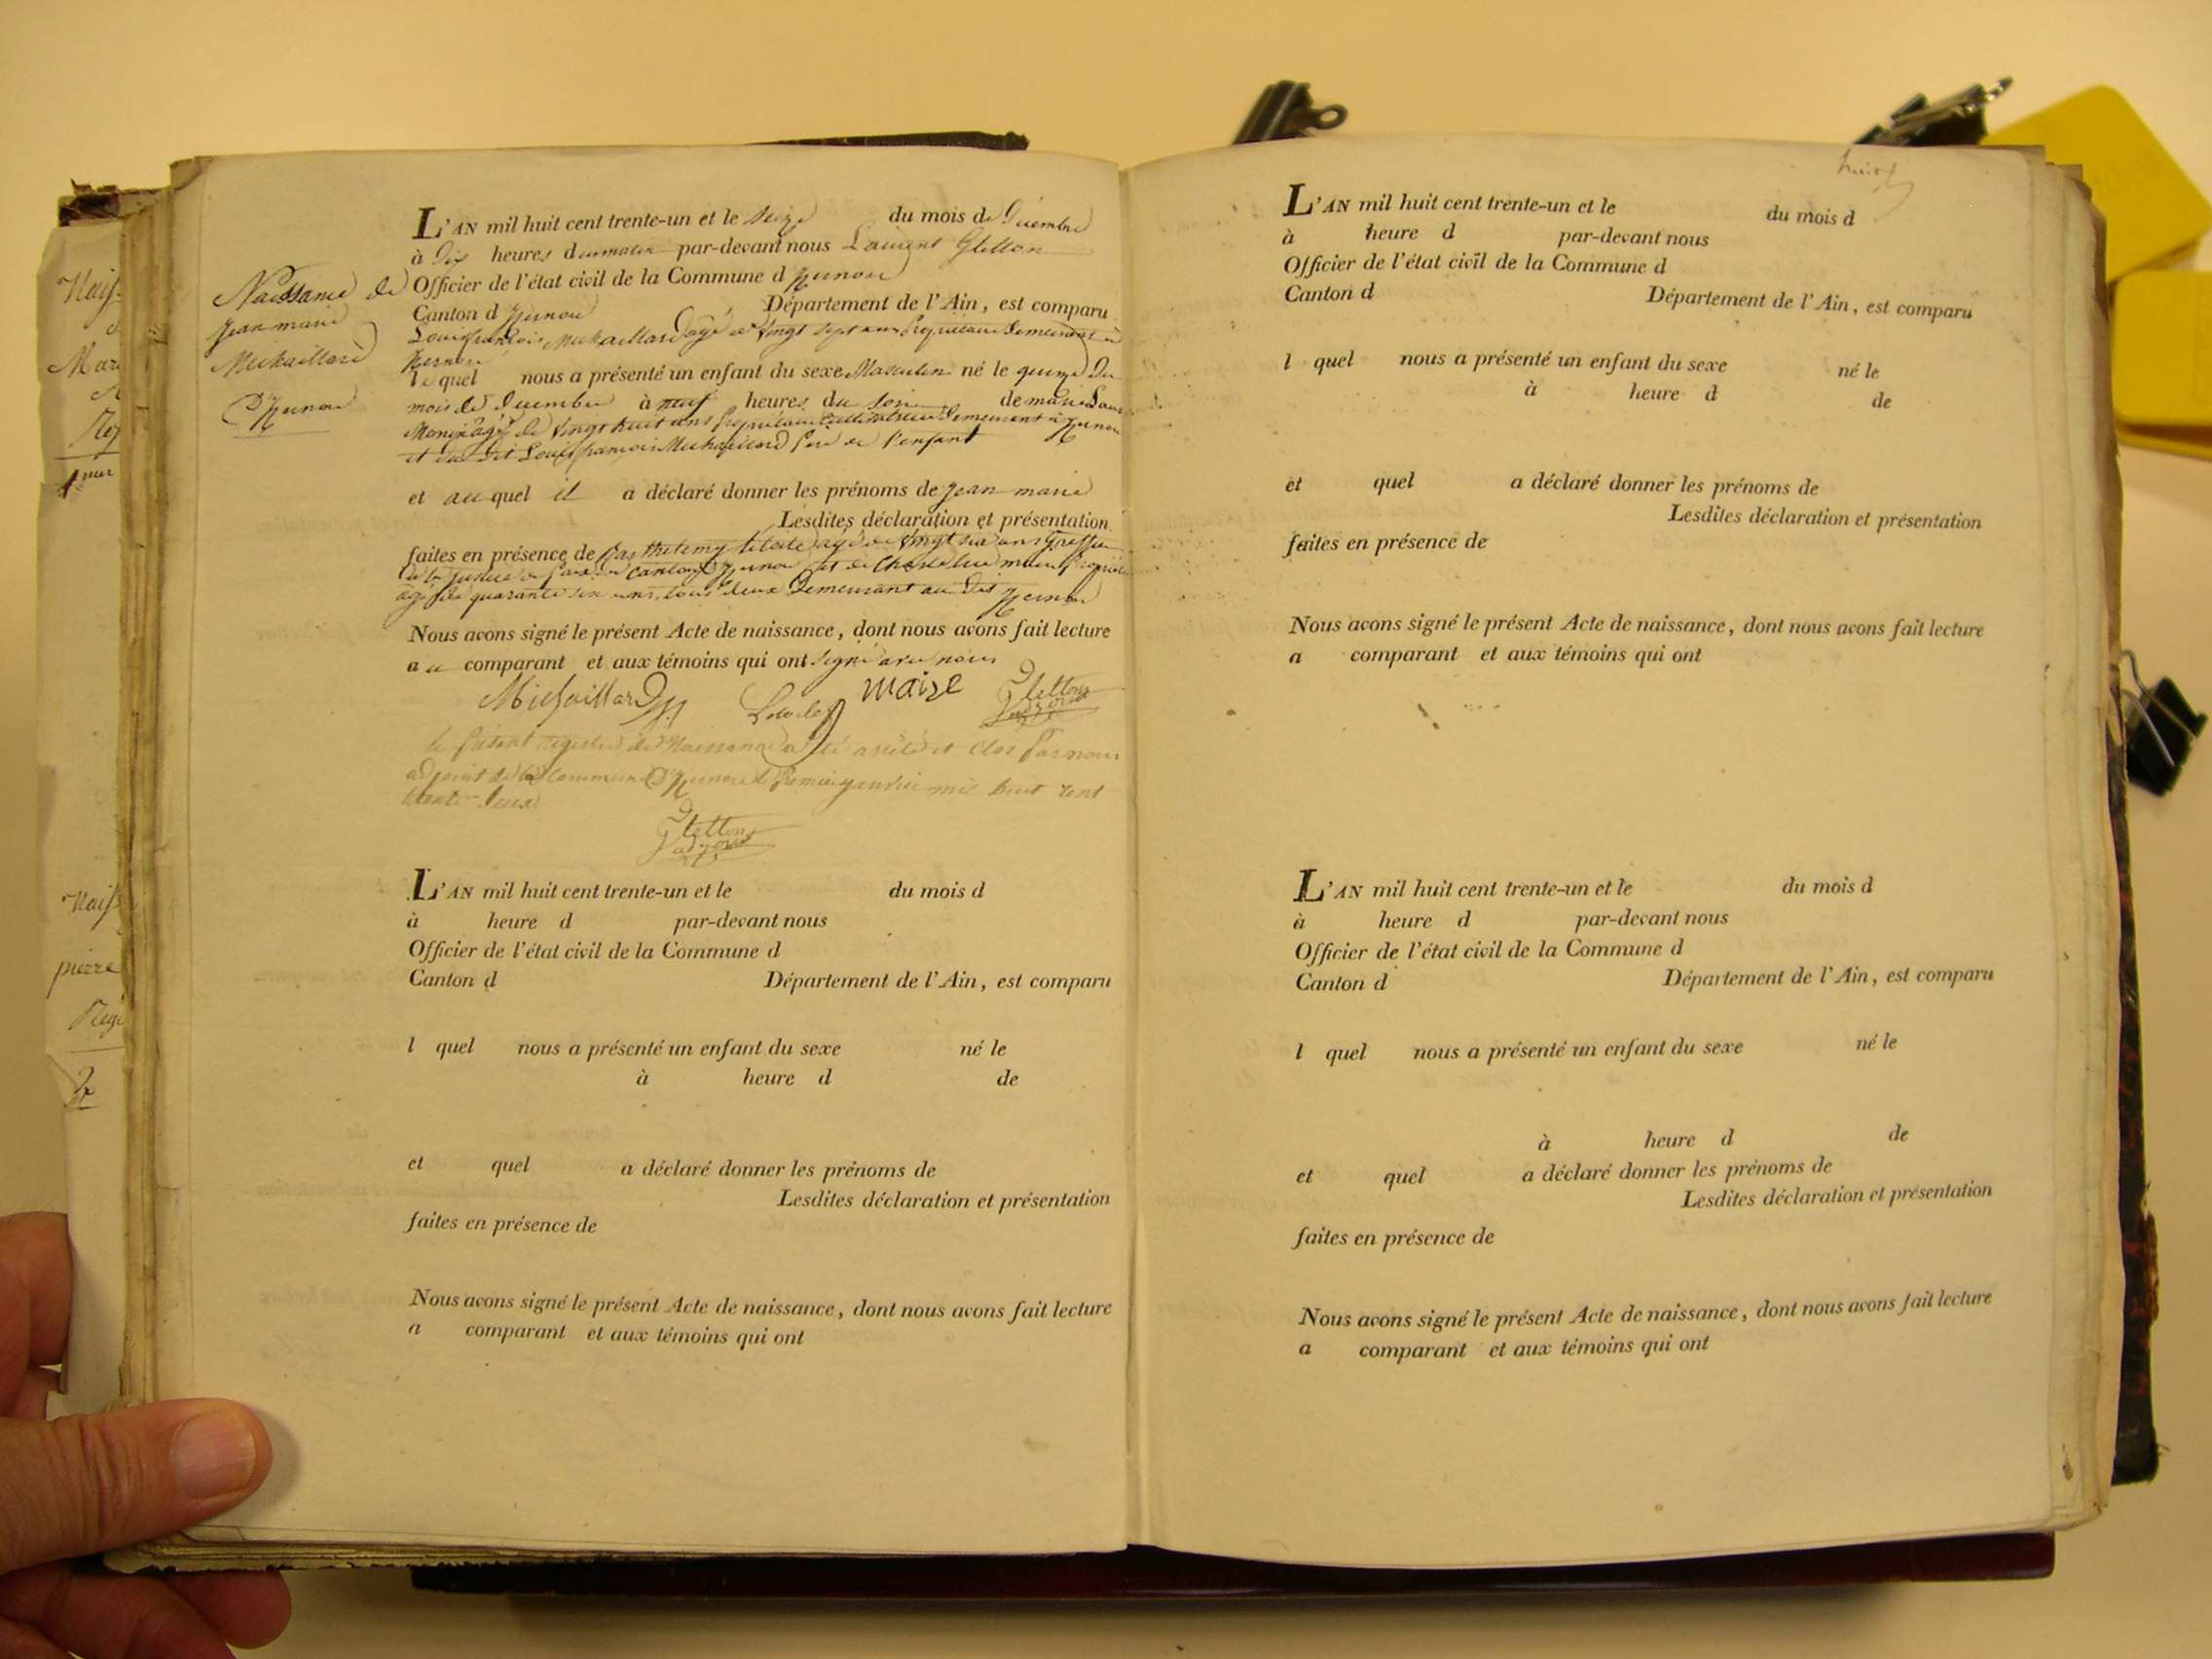 Naiss
Mar
Rey
1er
Naiss
pierre
Rey
2e
Naissance de
Jean marie
Michaillard
D'Yzernore
L'AN mil huit cent trente-un et le Seize du mois de Décembre
à Dix heures du matin par-devant nous Laurent Gletton
Officier de l'état civil de la Commune d'Yzernore
Canton d'Yzernore Département de l'Ain, est comparu
Louis françois Michaillard âgé de Vingt Sept ans Propriétaire Demeurant à
Yzernore
lequel nous a présenté un enfant du sexe Masculin né le quinze Du
mois de Décembre à neuf heures du Soir de marie
âgée de Vingt huit ans Propriétaire Cultivatrice Demeurant à Yzernore
et du Dit Louis françois Michaillard Père de l'enfant
et auquel il a déclaré donner les prénoms de Jean marie
Lesdites déclaration et présentation
faites en présence de Barthelemy âgé de Vingt six ans Greffier
De la Justice de Paix du Canton d'Yzernore et de Charles maire
âgé de quarante six ans, tous deux Demeurant au Dit Yzernore
Nous avons signé le présent Acte de naissance, dont nous avons fait lecture
au comparant et aux témoins qui ont Signé avec nous
Michaillard maire Gletton
le Présent registre de Naissance a été arrêté et Clos Par nous
adjoint de la Commune D'Yzernore le Premier Janvier mil huit cent
trente-Deux
Gletton
L'AN mil huit cent trente-un et le du mois d
à heure d par-devant nous
Officier de l'état civil de la Commune d
Canton d Département de l'Ain, est comparu
l quel nous a présenté un enfant du sexe né le
à heure d de
et quel a déclaré donner les prénoms de
Lesdites déclaration et présentation
faites en présence de
Nous avons signé le présent Acte de naissance, dont nous avons fait lecture
a comparant et aux témoins qui ont
huit
L'AN mil huit cent trente-un et le du mois d
à heure d par-devant nous
Officier de l'état civil de la Commune d
Canton d Département de l'Ain, est comparu
l quel nous a présenté un enfant du sexe né le
à heure d de
et quel a déclaré donner les prénoms de
Lesdites déclaration et présentation
faites en présence de
Nous avons signé le présent Acte de naissance, dont nous avons fait lecture
a comparant et aux témoins qui ont
L'AN mil huit cent trente-un et le du mois d
à heure d par-devant nous
Officier de l'état civil de la Commune d
Canton d Département de l'Ain, est comparu
l quel nous a présenté un enfant du sexe né le
à heure d de
et quel a déclaré donner les prénoms de
Lesdites déclaration et présentation
faites en présence de
Nous avons signé le présent Acte de naissance, dont nous avons fait lecture
a comparant et aux témoins qui ont